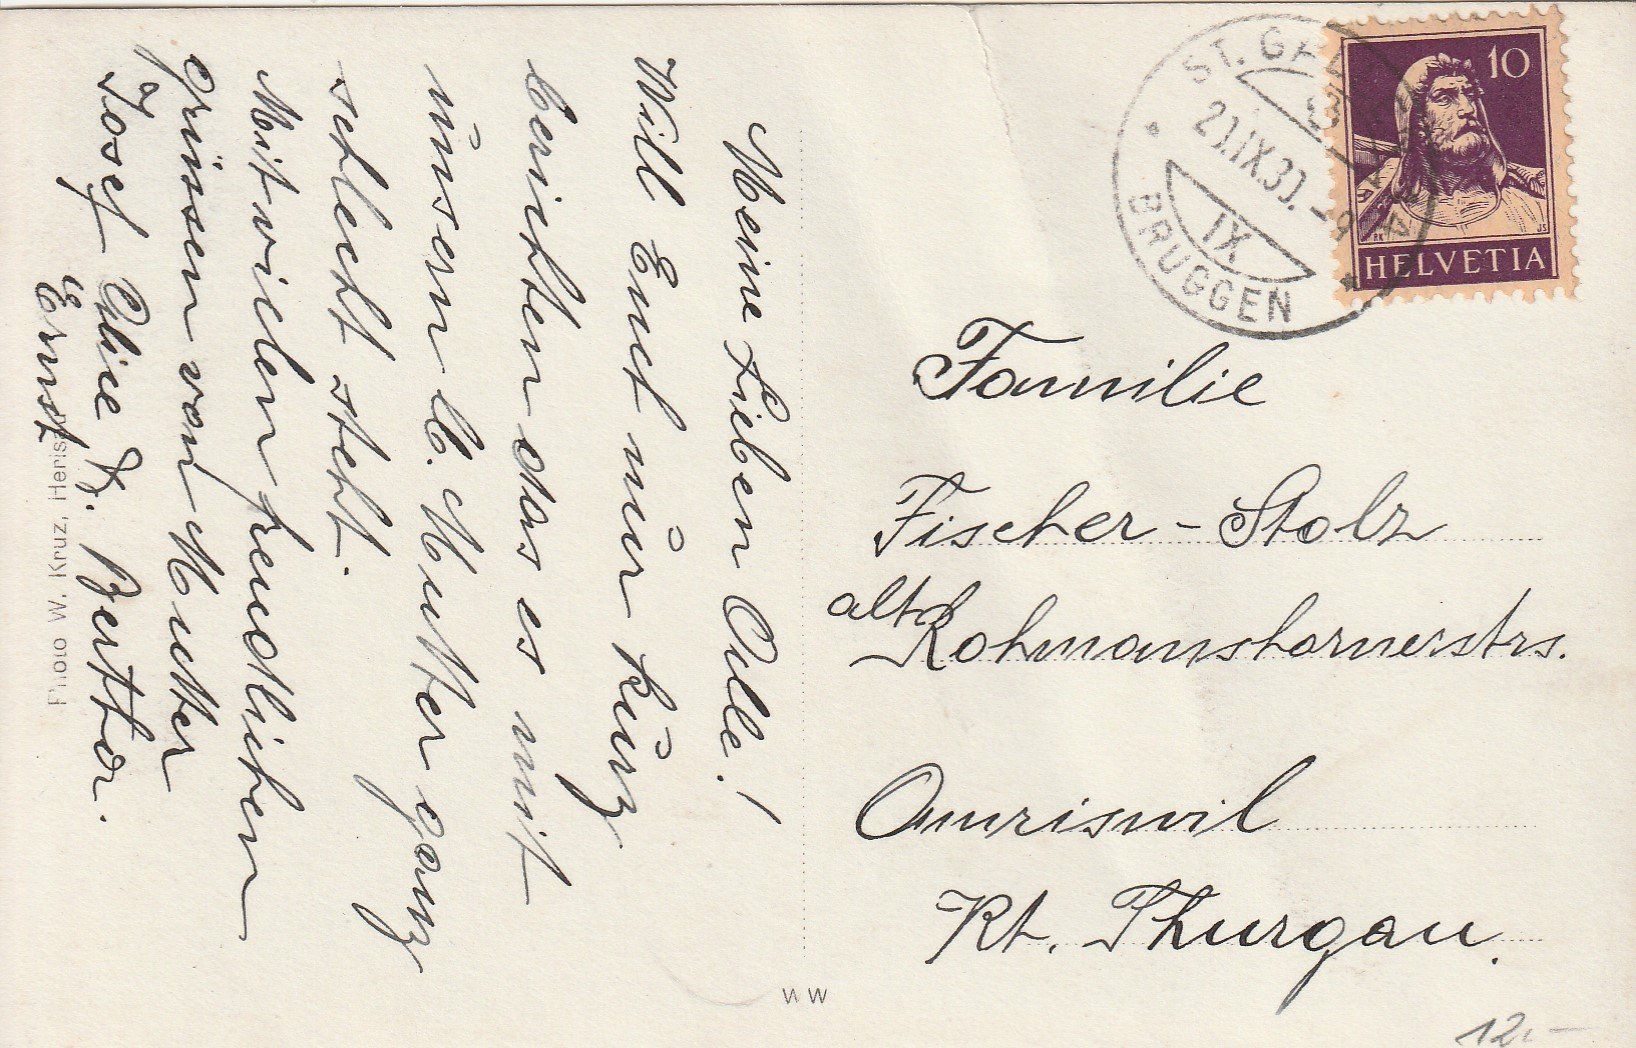 Meine Lieben Alle!
Will Euch nur kurz
berichten das es mit
unsern lb. Mutter ganz
schlecht steht.
Mit vielen freudlichen
Grüssen von Mutter
Josef Alice & Bertha.
Ernst
Photo W. Kruz, Heris
ST. GALLEN
2).IX.30.-9
IX
BRUGGEN
10
HELVETIA
Familie
Fischer-Stolz
alte
Rohmanshornerstrs.
Amriswil
Kt. Thurgau.
WW
12.-